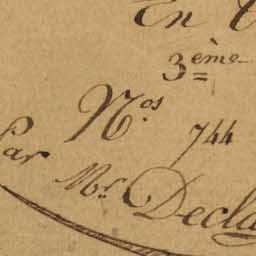 En
3ème
Nos 744
Par
Mr. Decla